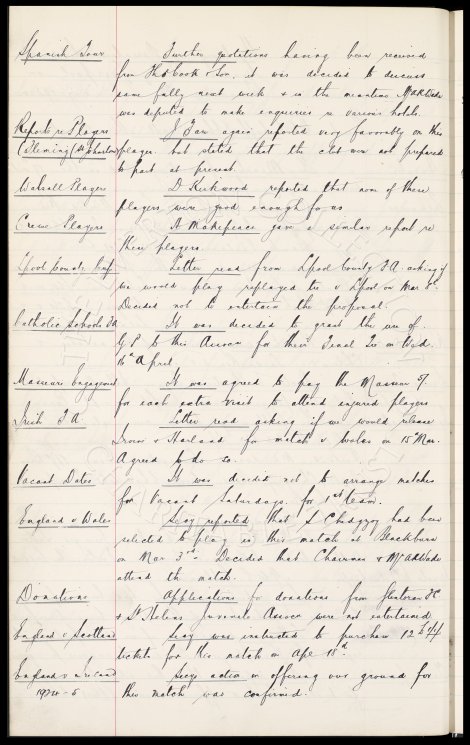 Spanish Tour Further quotations having been received
from Thos Cook & Son, it was decided to discuss
same fully next week & in the meantime Mr A.R. Wade
was deputed to make enquiries re various hotels.
Reports re Players J. Farr again reported very favorably on this
(Fleming (St Johnstone) player. but stated that the club were not prepared
to part at present.
Walsall Players D. Kirkwood reported that none of these
players were good enough for us
Crewe Players A. Makepeace gave a similar report re
these players.
Lpool County Cup Letter read from Lpool County F.A. asking if
we would play replayed tie v Lpool on Mar
Decided not to entertain the proposal.
Catholic Schools F.A. It was decided to grant the use of
G.P. to this Assocn for their Final Tie on Wed.
16th April.
Masseurs Engagement It was agreed to pay the Masseur 5/-
for each extra visit to attend injured players
Irish F.A. Letter read asking if we would release
Irvine & Harland for match v Wales on 15th Mar.
Agreed to do so.
Vacant Dates It was decided not to arrange matches
for Vacant Saturdays for 1st team.
England v Wales Secy reported that S. Chedgzoy had been
selected to play in this match at Blackburn
on Mar 3rd. Decided that Chairman & Mr A.R. Wade
attend the match.
Donations Applications for donations from Glentoran FC
& St Helens Juvenile Assocn were not entertained
England v Scotland Secy was instructed to purchase 12
tickets for this match on Apl
England v Ireland Secys action in offering our ground for
1924-5 this match was confirmed.